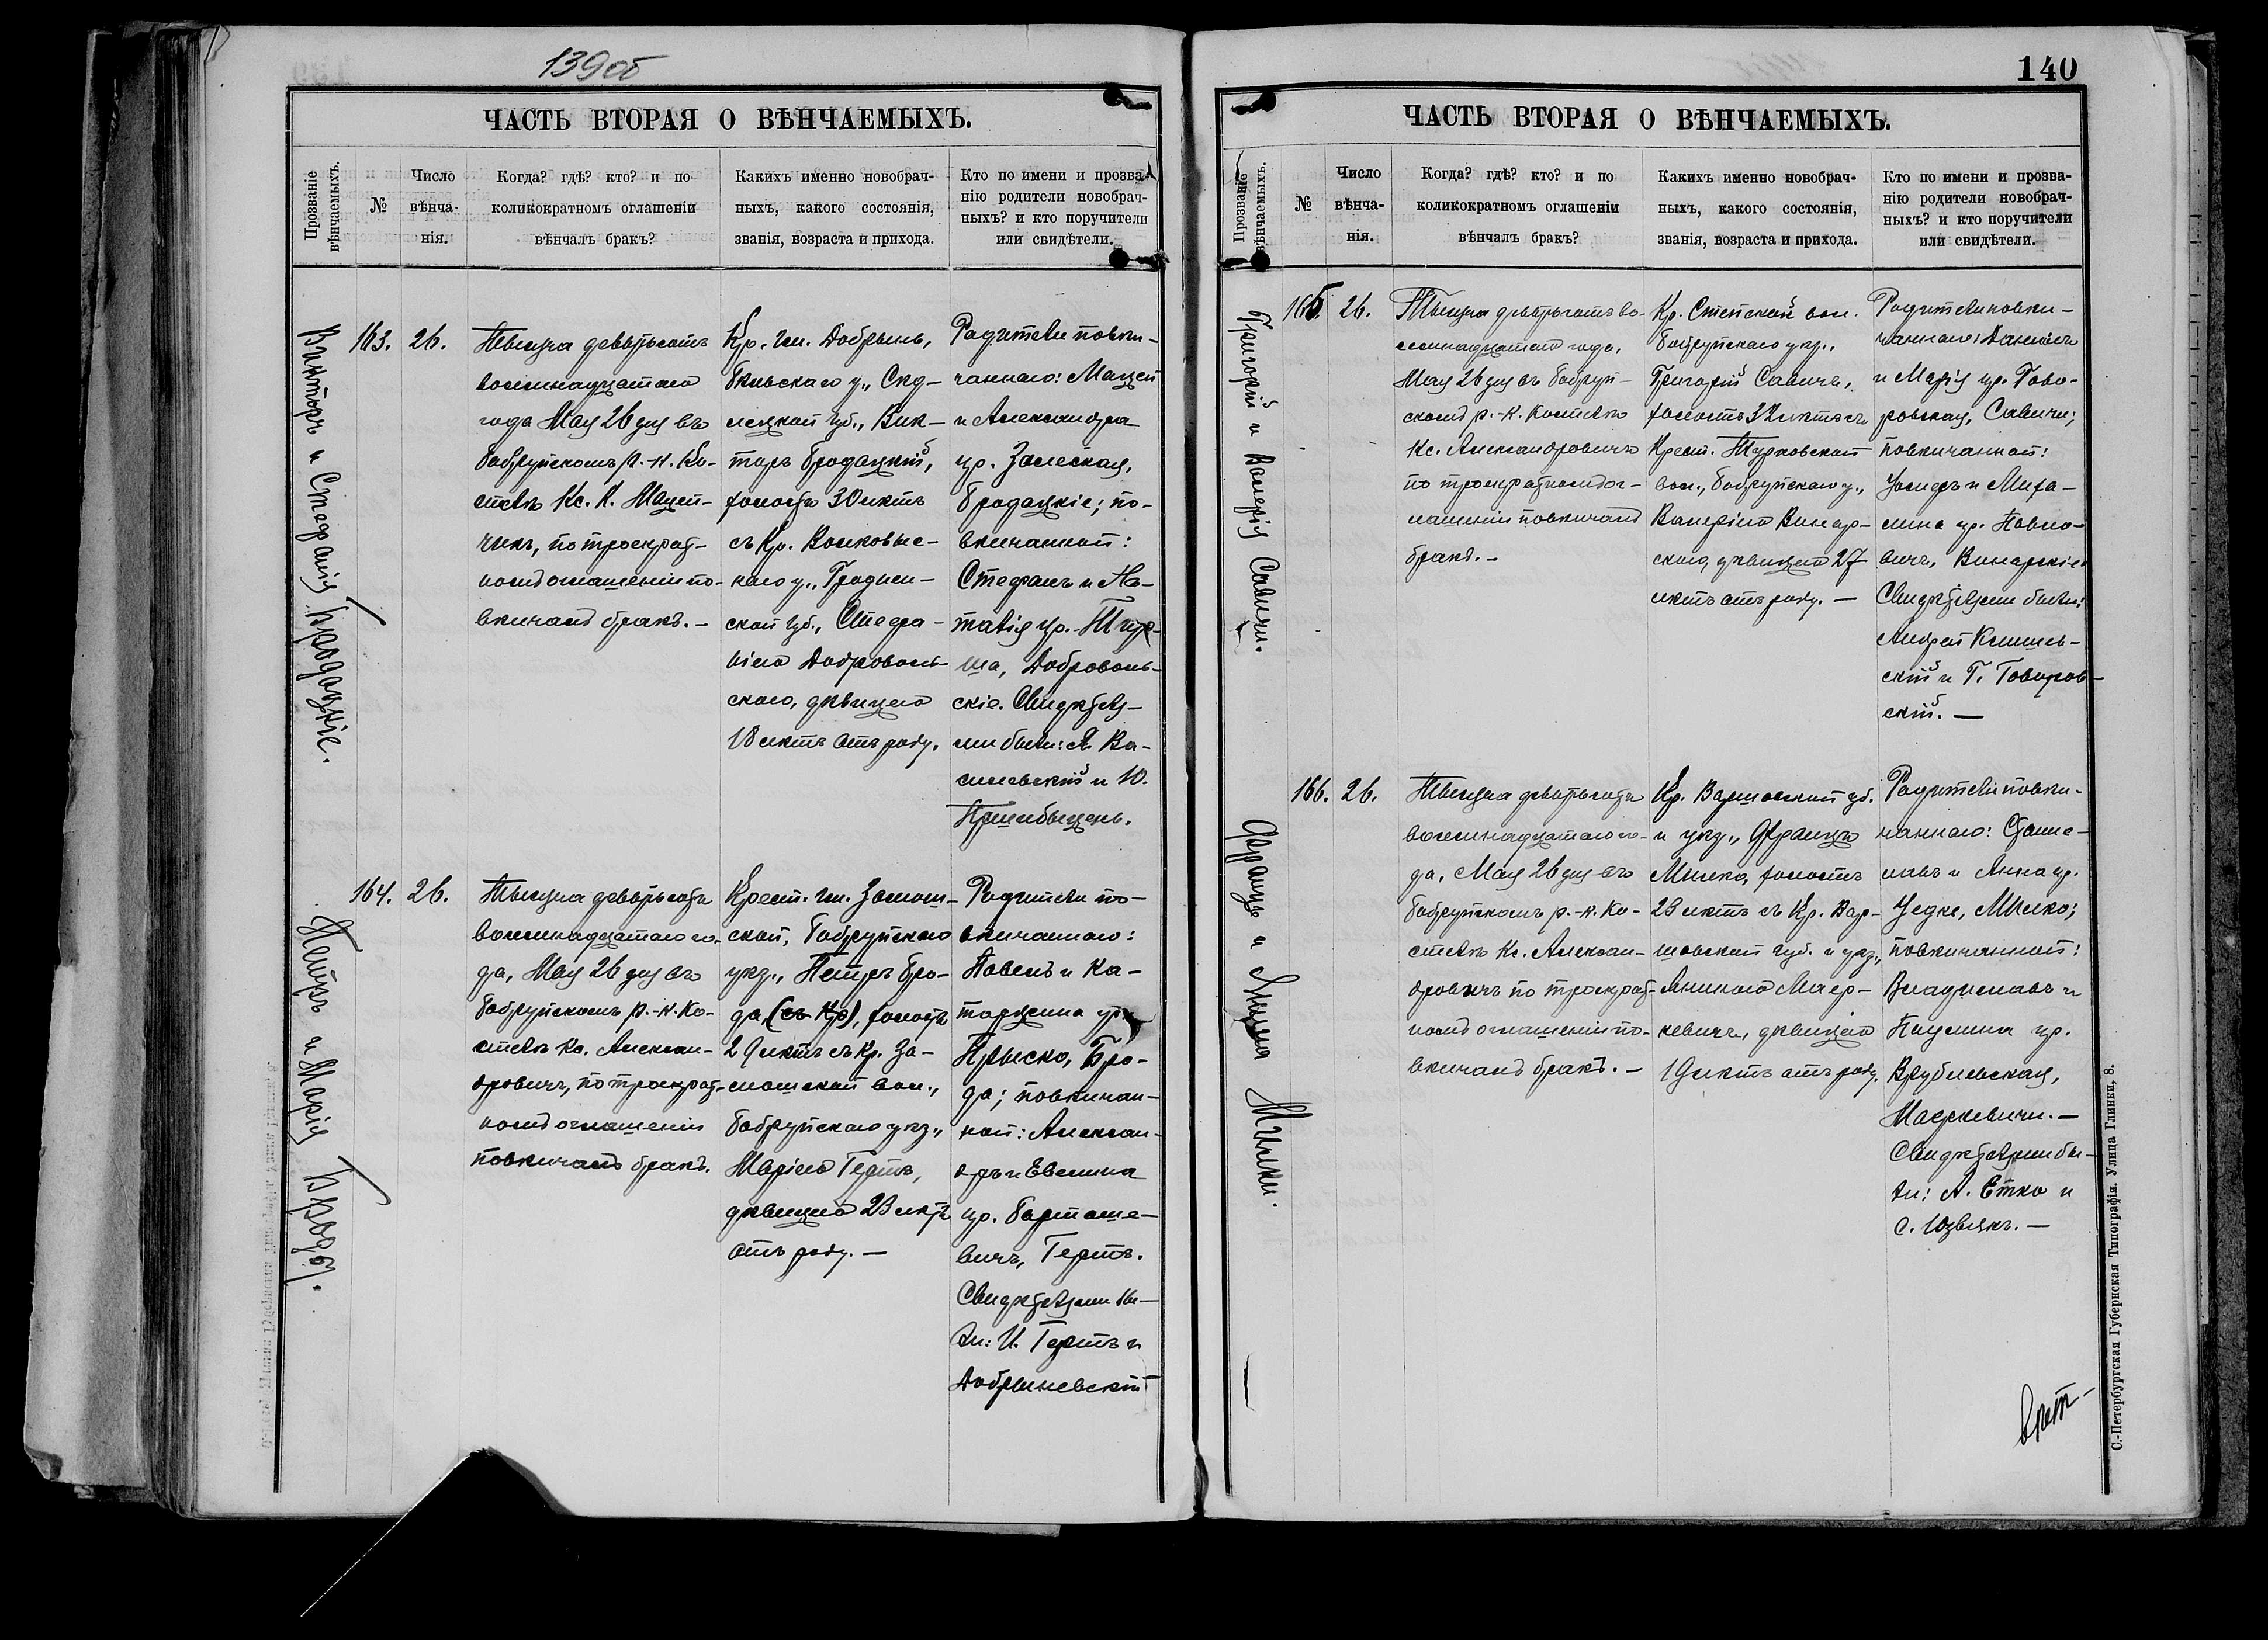 139 об
ЧАСТЬ ВТОРАЯ О ВѢНЧАЕМЫХЪ.
Прозваніе
вѣнчаемыхъ.
№
Число
вѣнча-
нія.
Когда? гдѣ? кто? и по
коликократномъ оглашеніи
вѣнчалъ бракъ?
Какихъ именно новобрач-
ныхъ, какого состоянія,
званія, возраста и прихода.
Кто по имени и прозва-
нію родители новобрач-
ныхъ? и кто поручители
или свидѣтели.
Викторъ и Стефанія Бродацкіе.
163.
26.
Тысяча девятьсотъ
восемнадцатаго
года Мая 26 дня въ
Бобруйскомъ р.-к. Ко-
стелѣ Кс. К. Мацей-
чикъ, по троекрат-
номъ оглашеніи по-
вѣнчалъ бракъ. —
Кр. гм. Добрынь,
Бѣльскаго у., Сѣд-
лецкой губ., Вик-
торъ Бродацкій,
холостъ 30 лѣтъ
съ Кр. Волковыс-
каго у., Гроднен-
ской губ., Стефа-
ніею Добровольс-
кою, дѣвицею
18 лѣтъ отъ роду.
Родители повѣн-
чаннаго: Мацей
и Александра
ур. Залеская,
Бродацкіе; по-
вѣнчанной:
Стефанъ и На-
талія ур. Тур-
ша, Добровольс-
кіе. Свидѣтеля-
ми были: А. Ва-
силевскій и Ю.
Пришбыцень.
Петръ и Марія Брода.
164.
26.
Тысяча девятьсотъ
восемнадцатаго го-
да, Мая 26 дня въ
Бобруйскомъ р.-к. Ко-
стелѣ Кс. Алексан-
дровичъ, по троекрат-
номъ оглашеніи
повѣнчалъ бракъ.
Крест. гм. Замош-
ской, Бобруйскаго
уѣз., Петръ Бро-
да, (съ Кр), холостъ
29 лѣтъ съ Кр. За-
мошской вол.,
Бобруйскаго уѣз.,
Маріею Гертъ,
дѣвицею 23 лѣтъ
отъ роду. —
Родители по-
вѣнчаннаго:
Павелъ и Ка-
таржина ур.
Прыско, Бро-
да; повѣнчан-
ной: Алексан-
дръ и Евелина
ур. Барташе-
вичъ, Гертъ.
Свидѣтелями бы-
ли: И. Гертъ и
Добрыневскій
140
ЧАСТЬ ВТОРАЯ О ВѢНЧАЕМЫХЪ.
Прозваніе
вѣнчаемыхъ.
№
Число
вѣнча-
нія.
Когда? гдѣ? кто? и по
коликократномъ оглашеніи
вѣнчалъ бракъ?
Какихъ именно новобрач-
ныхъ, какого состоянія,
званія, возраста и прихода.
Кто по имени и прозва-
нію родители новобрач-
ныхъ? и кто поручители
или свидѣтели.
Григорій и Валерія Савичи.
165.
26.
Тысяча девятьсотъ во-
семнадцатаго года,
Мая 26 дня въ Бобруй-
скомъ р.-к. Костелѣ
Кс. Александровичъ
по троекратномъ ог-
лашеніи повѣнчалъ
бракъ. —
Кр. Степской вол.
Бобруйскаго уѣз.,
Григорій Савичъ,
холостъ 32 лѣтъ съ
Крест. Турковской
вол., Бобруйскаго у.,
Валеріею Винар-
скою, дѣвицею 27
лѣтъ отъ роду. —
Родители повѣн-
чаннаго: Даніилъ
и Марія ур. Гово-
ровская, Савичи;
повѣнчанной:
Іосифъ и Миха-
лина ур. Павло-
вичъ, Винарскіе.
Свидѣтелями были:
Андрей Клишев-
скій и Г. Говоров-
скій. —
Францъ и Янина Милки.
166.
26.
Тысяча девятьсотъ
восемнадцатаго го-
да, Мая 26 дня въ
Бобруйскомъ р.-к. Ко-
стелѣ Кс. Алексан-
дровичъ по троекрат-
номъ оглашеніи по-
вѣнчалъ бракъ. —
Кр. Варшавской губ.
и уѣз., Францъ
Милко, холостъ
23 лѣтъ съ Кр. Вар-
шавской губ. и уѣз.,
Яниною Мацке-
вичъ, дѣвицею
19 лѣтъ отъ роду.
Родители повѣн-
чаннаго: Стани-
лавъ и Анна ур.
Милко;
повѣнчанной:
Владиславъ и
Паулина ур.
Врублевская,
Мацкевичи. —
Свидѣтелями бы-
ли: А. Етко и
С. Юзвякъ. —
С.-Петербургская Губернская Типографія. Улица Глинки, 8.